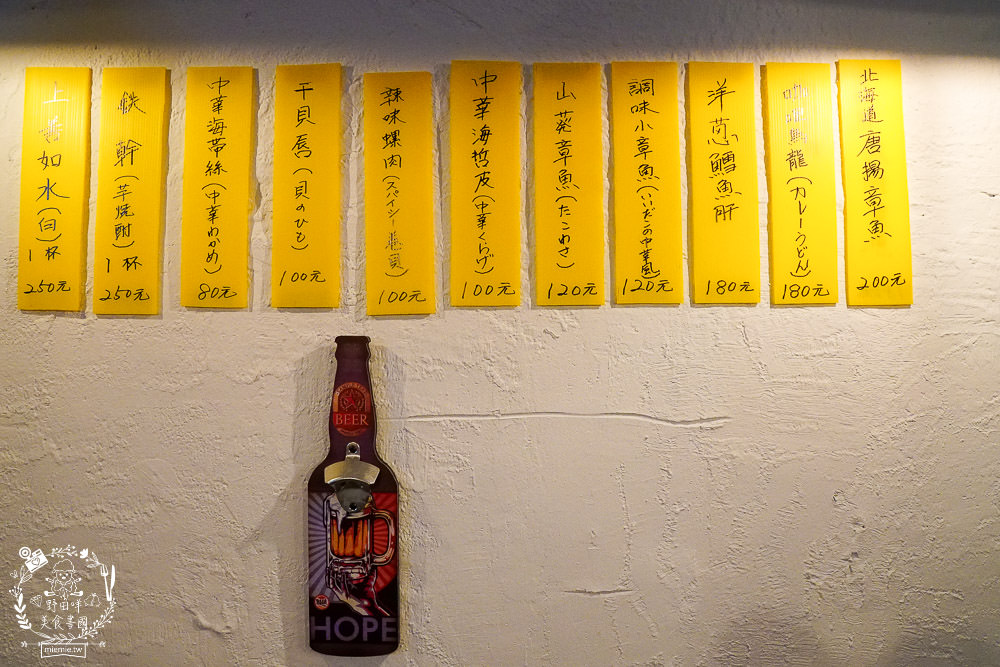 上善如水(白)1杯 250元
鉄幹(芋焼酎)1杯 250元
中華海帯絲(中華わかめ) 80元
干貝唇(貝のひも) 100元
辣味螺肉(スパイシー 100元
中華海哲皮(中華くらげ) 100元
山葵章魚(たこわさ) 120元
調味小章魚(いいだこの中華風) 120元
洋葱鱈魚肝 180元
龍(カレーうどん) 180元
北海道唐揚章魚 200元
BEER
HOPE
野田咩
美食書國
miemie.tw